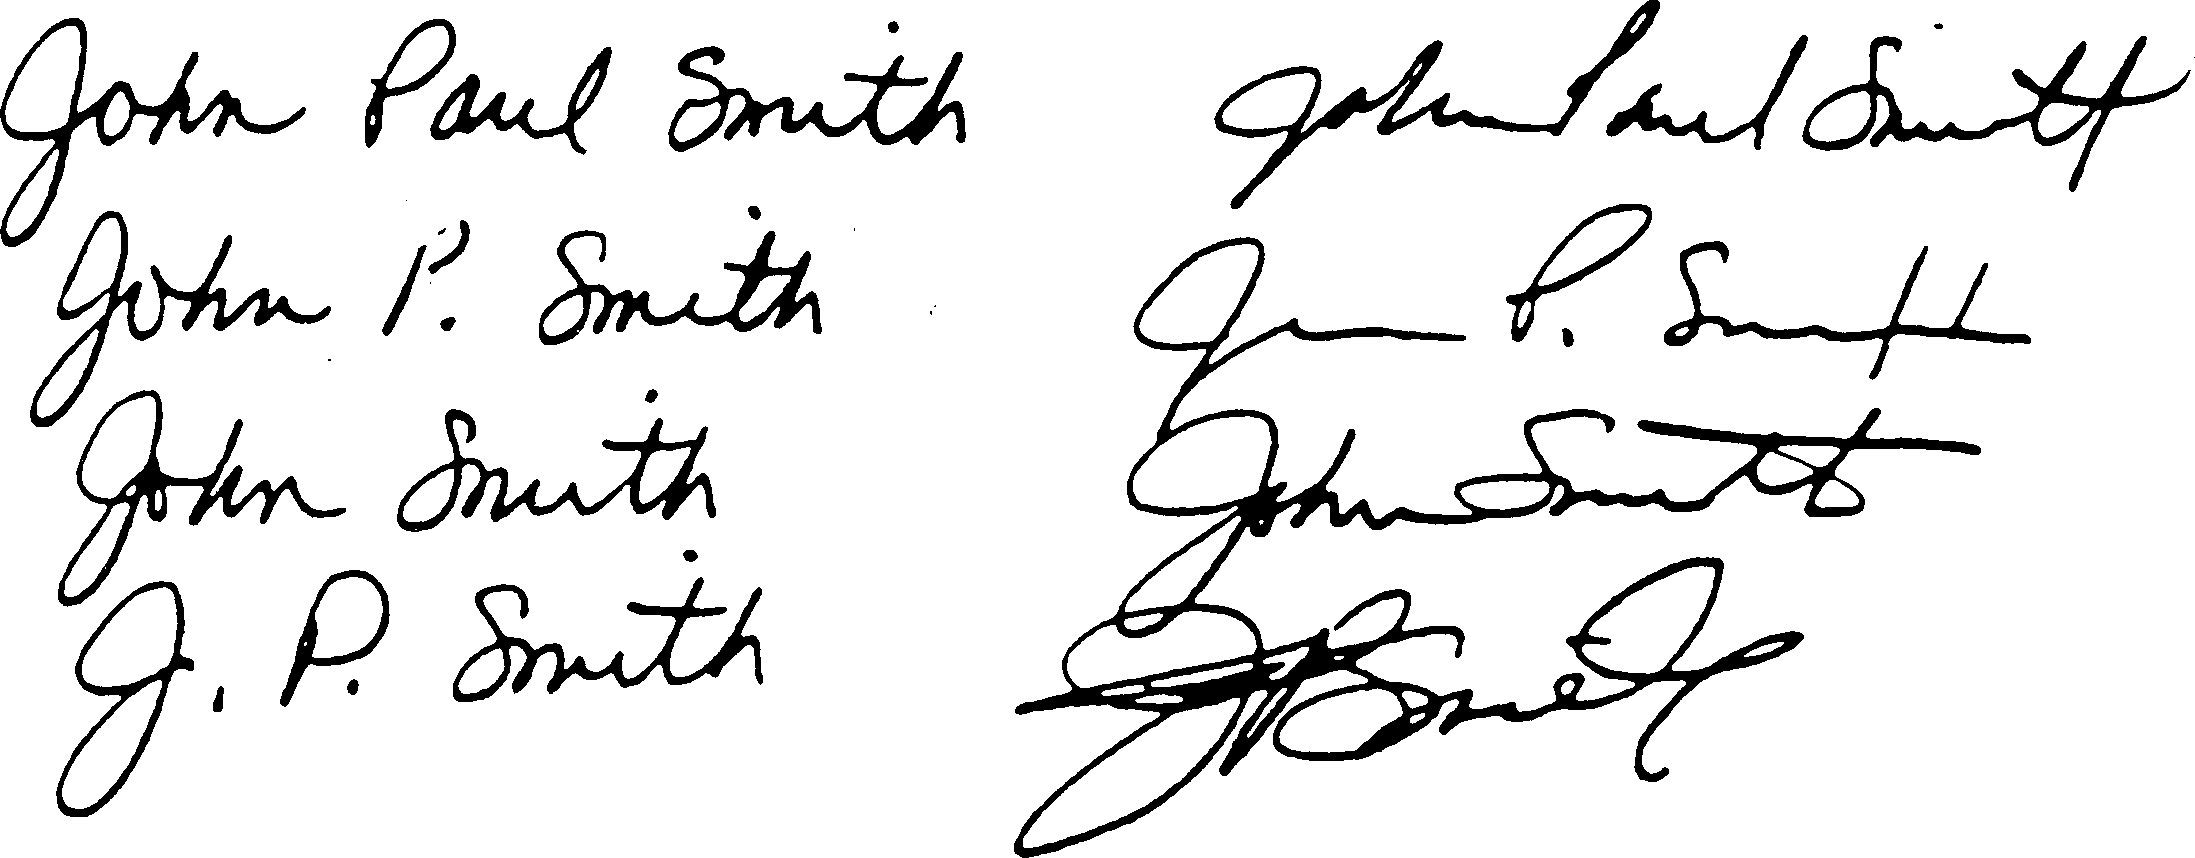 John Paul Smith John Paul Smith
John P. Smith P. Smith
John Smith John Smith
J. P. Smith J P Smith